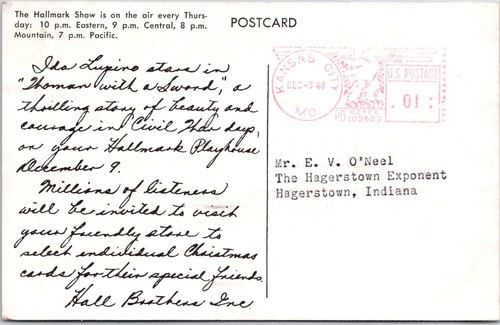 The Hallmark Show is on the air every Thurs-
day: 10 p.m. Eastern, 9 p.m. Central, 8 p.m.
Mountain, 7 p.m. Pacific.
POSTCARD
Ida Lupino stars in
"Woman with a Sword", a
thrilling story of beauty and
courage in Civil War days,
on your Hallmark Playhouse
December 9.
Millions of listeners
will be invited to visit
your friendly store to
select individual Christmas
cards for their special friends.
Hall Brothers Inc
KANSAS CITY
DEC-3'48
MO.
U.S. POSTAGE
.01
METER
P.B. 109609
Mr. E. V. O'Neel
The Hagerstown Exponent
Hagerstown, Indiana